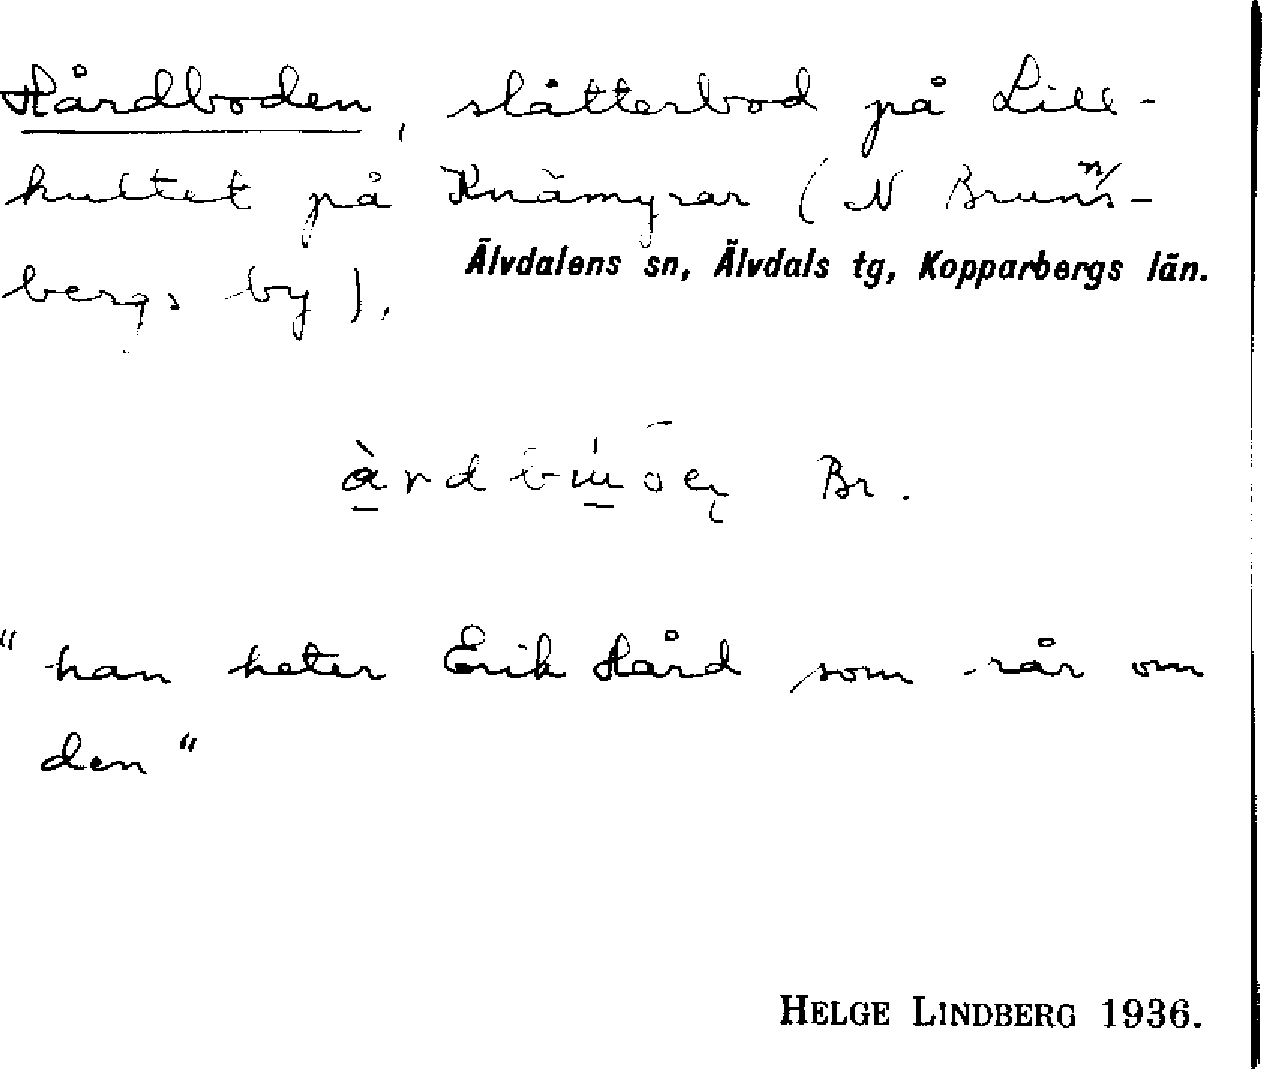 Hårdboden, slåtterbod på Lill-
hultet på Knämyrar (N Brunns-
Älvdalens sn, Älvdals tg, Kopparbergs län.
bergs by).
Br.
"han heter Erik Hård som rår om
den"
HELGE LINDBERG 1936.